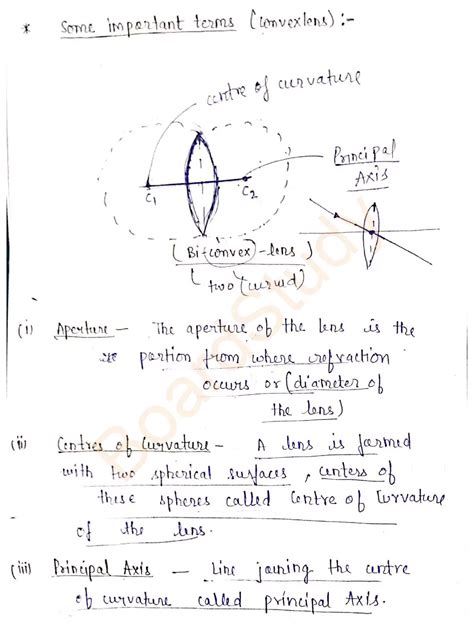 * Some important terms (Convexlens):-
centre of curvature
Principal
Axis
C1
C2
(Bi-(convex)-lens)
(two (curved)
(i) Aperture — The aperture of the lens is the
portion from where refraction
occurs or (diameter of
the lens)
(ii) Centres of Curvature - A lens is formed
with two spherical surfaces, centers of
these spheres called Centre of Curvature
of the lens.
(iii) Principal Axis — Line joining the centre
of curvature called principal Axis.
BoardStudy